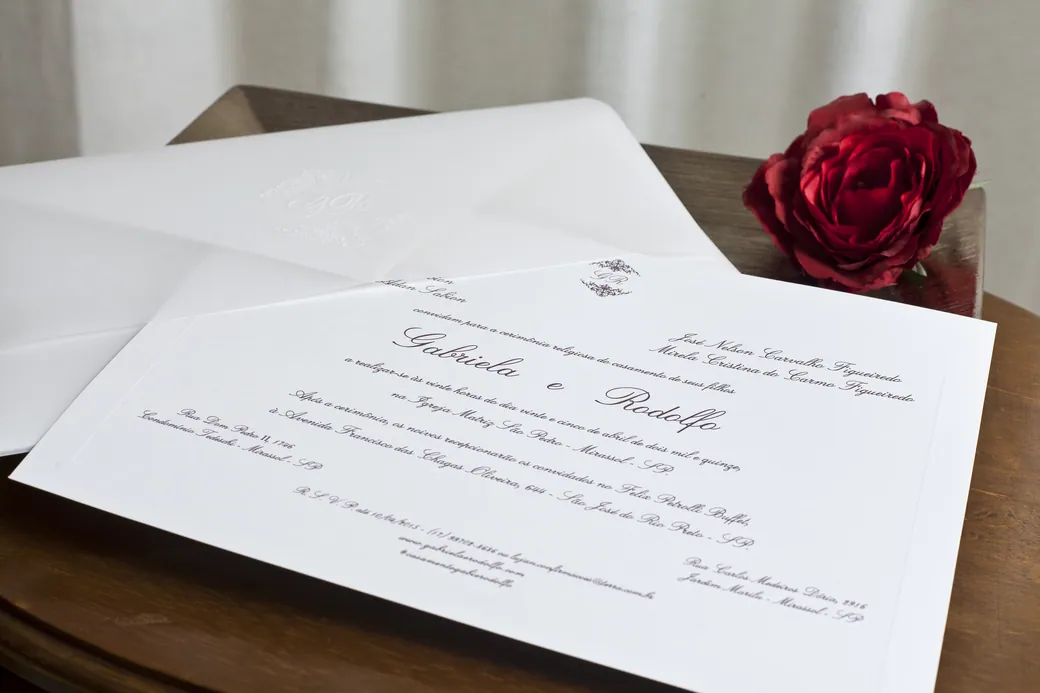 GR
GR
José Nelson Carvalho Figueiredo
Mirela Cristina do Carmo Figueiredo
convidam para a cerimônia religiosa do casamento de seus filhos
Gabriela e Rodolfo
a realizar-se às vinte horas do dia vinte e cinco de abril de dois mil e quinze,
na Igreja Matriz São Pedro - Mirassol - SP.
Após a cerimônia, os noivos recepcionarão os convidados no Felix Petrolli Buffet,
à Avenida Francisco das Chagas Oliveira, 644 - São José do Rio Preto - SP.
Rua Dom Pedro II, 1746
Condomínio - Mirassol - SP
Rua Carlos Medeiros 2916
Jardim Marilu - Mirassol - SP
R.S.V.P. até 10/04/2015 - (17)
www.gabrielaerodolfo.com
#casamentogabierodolfo